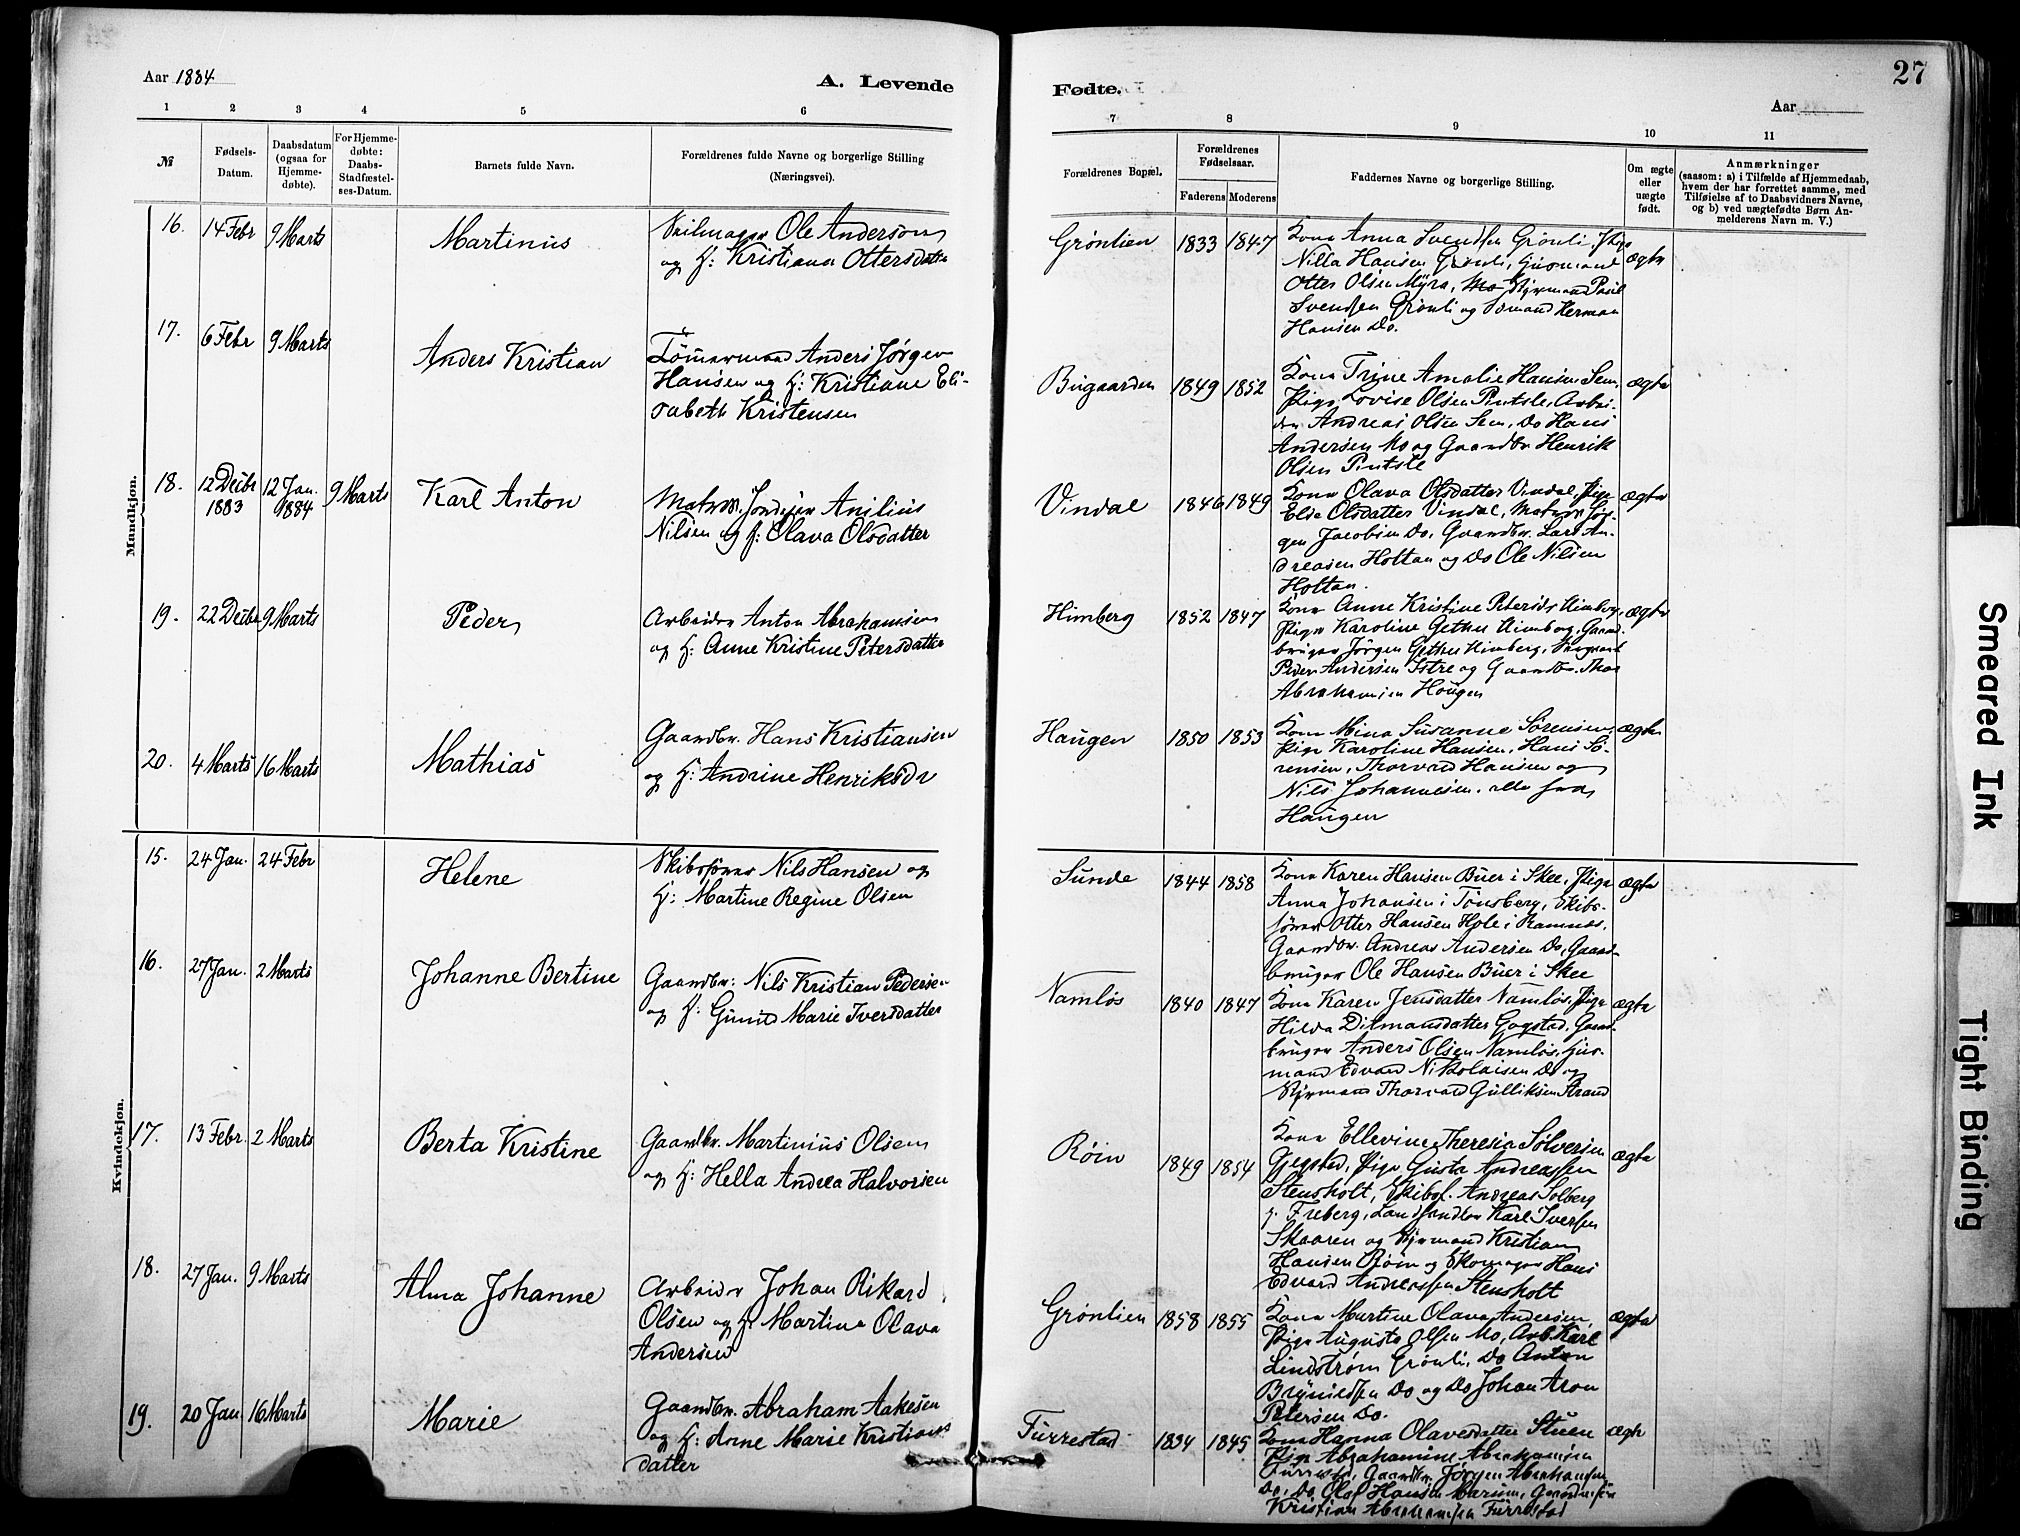 Aar 1884
A. Levende
Fødte.
Aar
27
1 2 3 4 5 6 7 8 9 10 11
№
Fødsels-
Datum.
Daabsdatum
(ogsaa for
Hjemme-
døbte).
For Hjemme-
døbte:
Daabs-
Stadfæstel-
ses-Datum.
Barnets fulde Navn.
Forældrenes fulde Navne og borgerlige Stilling
(Næringsvei).
Forældrenes Bopæl.
Forældrenes
Fødselsaar.
Faderens Moderens
Faddernes Navne og borgerlige Stilling.
Om ægte
eller
uægte
født.
Anmærkninger
(saasom: a) i Tilfælde af Hjemmedaab,
hvem der har forrettet samme, med
Tilføielse af to Daabsvidners Navne,
og b) ved uægtefødte Børn An-
melderens Navn m. V.)
Mandkjøn.
16. 14 Febr 9 Marts
Martinus
Ole Andersen
og H: Kristiana Ottersdatter
Grønlien 1833 1847
Kona Anna Svendsen Grønli, Pige
Nilla Hansen Grønli, Husmand
Otter Olsen Myra, Styrmand Paul
Svendsen Grønli og Sømand Herman
Hansen Do.
ægte
17. 6 Febr 9 Marts
Anders Kristian
Tømmermand Anders Jørgen
Hansen og H: Kristiane Eli-
sabeth Kristensen
Bugaarden 1849 1852
Kona Trine Amalie Hansen Sem,
Pige Lovise Olsen Pintsle, Arbei-
der Andreas Olsen Sem, Do Hans
Andersen Mo og Gaardbr Henrik
Olsen Pintsle
ægte
18. 12 Decbr 1883 12 Jan. 1884 9 Marts
Karl Anton
Matros Anilius
Nilsen og H: Olava Olsdatter
Vindal 1846 1849
Kona Olava Olsdatter Vindal, Pige
Elise Olsdatter Vindal, Matros Jør-
gen Jacobsen Do, Gaardbr. Lars An-
dreasen Holtan og Do Ole Nilsen
Holtan.
ægte
19. 22 Decbr 9 Marts
Peder
Arbeider Anton Abrahamsen
og H: Anne Kristine Petersdatter
Himberg 1852 1847
Kona Anne Kristine Petersdr Himberg,
Pige Karoline Himberg, Gaard-
bruger Jørgen Himberg,
Peder Andersen Istre og Gaardbr. Thor
Abrahamsen Haugen
ægte
20. 4 Marts 16 Marts
Mathias
Gaardbr. Hans Kristiansen
og H: Andrine Henriksdr
Haugen 1850 1853
Kona Mina Susanne Sørensen,
Pige Karoline Hansen, Hans Sø-
rensen, Thorvald Hansen og
Nils Johannesen, alle fra
Haugen
ægte
Kvindekjøn.
15. 24 Jan. 24 Febr
Helene
Skibsfører Nils Hansen og
H: Martine Regine Olsen
Sunde 1844 1858
Kona Karen Hansen Buer i Skee, Pige
Anna Johansen i Tønsberg, Skibs-
fører Otter Hansen Hole i Ramnes,
Gaardbr. Andreas Andersen Do, Gaard-
bruger Ole Hansen Buer i Skee
ægte
16. 27 Jan. 2 Marts
Johanne Bertine
Gaardbr: Nils Kristian Pedersen
og H: Gunild Marie Iversdatter
Namløs 1840 1847
Kona Karen Jensdatter Namløs, Pige
Hilda Ditmansdatter Gogstad, Gaard-
bruger Anders Olsen Namløs, Hus-
mand Edvard Nikolaisen Do og
Styrmand Thorvald Gulliksen Strand
ægte
17. 13 Febr. 2 Marts
Berta Kristine
Gaardbr. Martinius Olsen
og H: Hella Andrea Halvorsen
Røin 1849 1854
Kona Ellevine Theresia Sølversen
Gjegstad, Pige Gusta Andreassen
Stensholt, Skibsf. Andreas Solberg
Freberg, Landhandler Karl Iversen
Skaaren og Styrmand Kristian
Hansen Røin og Skomager Hans
Edvard Andreassen Stensholt
ægte
18. 27 Jan. 9 Marts
Alma Johanne
Arbeider Johan Rikard
Olsen og H: Martine Olava
Andersen
Grønlien 1858 1855
Kona Martine Olava Andersen,
Pige Augusta Olsen Mo, Arb Karl
Lindstrøm Grønli, Do Anton
Brynildsen Do og Do Johan Aron
Petersen Do.
ægte
19. 20 Jan 16 Marts
Marie
Gaardbr. Abraham Aakesen
og H: Anne Marie Kristians
datter
Furrestad 1834 1845
Kona Hanna Olavesdatter Stuen
Pige Abrahamine Abrahamsen
Furrestad, Gaardbr. Jørgen Abrahamsen
Do, Do Olof Hansen Marum,
Kristian Abrahamsen Furrestad
ægte
Smeared Ink
Tight Binding